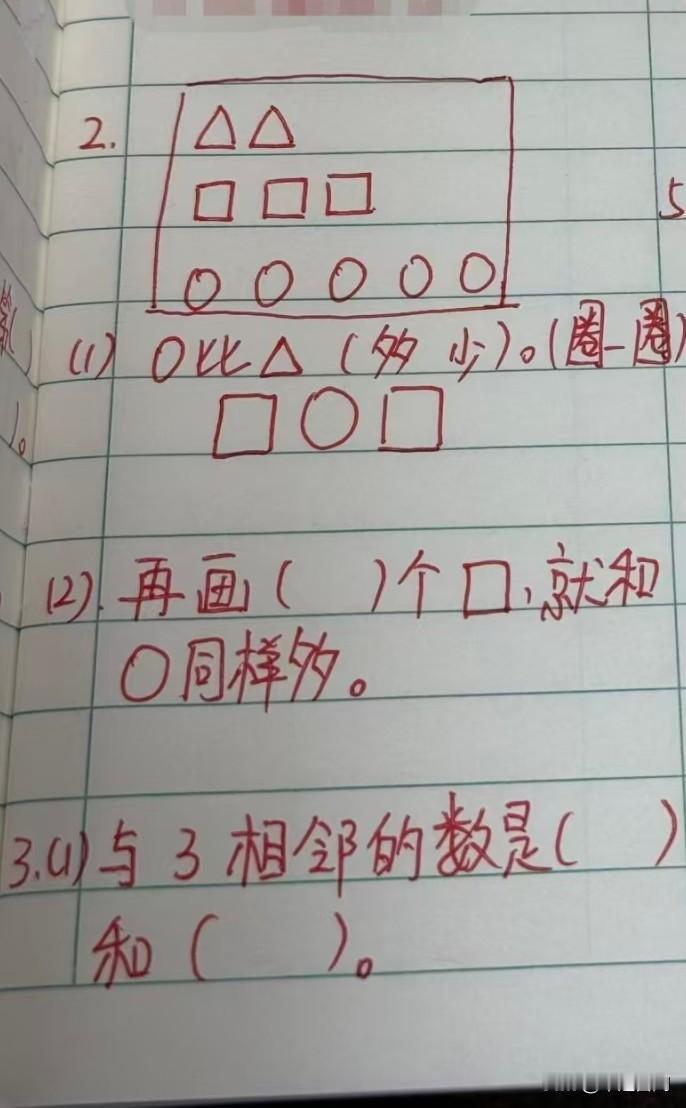 2.
△ △
□ □ □
○ ○ ○ ○ ○
5
(1) ○比△(多 少)。(圈一圈)
□ ○ □
)。
(2).再画( )个□,就和
○同样多。
3.(1)与3相邻的数是( )
和( )。